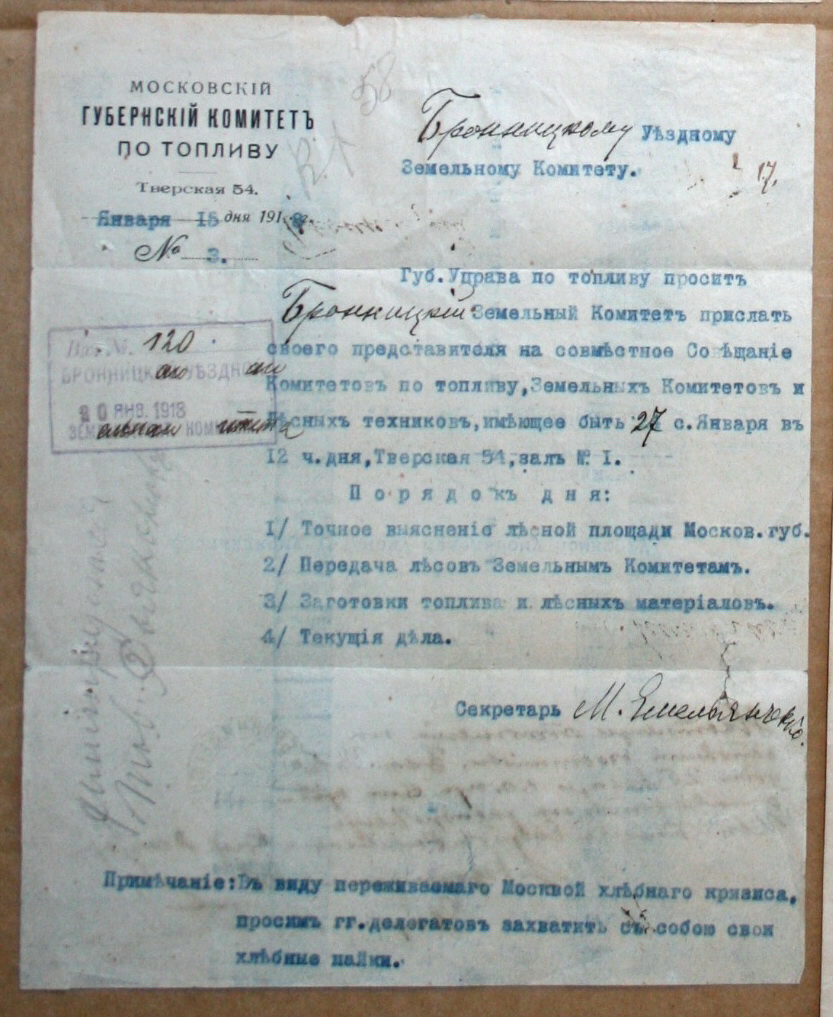 МОСКОВСКІЙ
ГУБЕРНСКІЙ КОМИТЕТЪ
ПО ТОПЛИВУ
Тверская 54.
Января 15 дня 1918 г.
№ 3.
58
Бронницкому Уѣздному
Земельному Комитету.
17.
Губ.Управа по топливу проситъ
Бронницкій Земельный Комитетъ прислать
своего представителя на совмѣстное Совѣщаніе
Комитетовъ по топливу,Земельныхъ Комитетовъ и
Лѣсныхъ техниковъ,имѣющее быть 27 с.Января въ
12 ч.дня,Тверская 54,залъ № I.
Порядокъ дня:
1/ Точное выясненіе лѣсной площади Москов.губ.
2/ Передача лѣсовъ Земельнымъ Комитетамъ.
3/ Заготовки топлива и лѣсныхъ матеріаловъ.
4/ Текущія дѣла.
Вх. №. 120
БРОННИЦК УѢЗДНО
20 ЯНВ. 1918
ЗЕМ КОМИ
Секретарь М. Емельянов
Примѣчаніе:Въ виду переживаемаго Москвой хлѣбнаго кризиса,
просимъ гг.делегатовъ захватить съ собою свои
хлѣбные пайки.